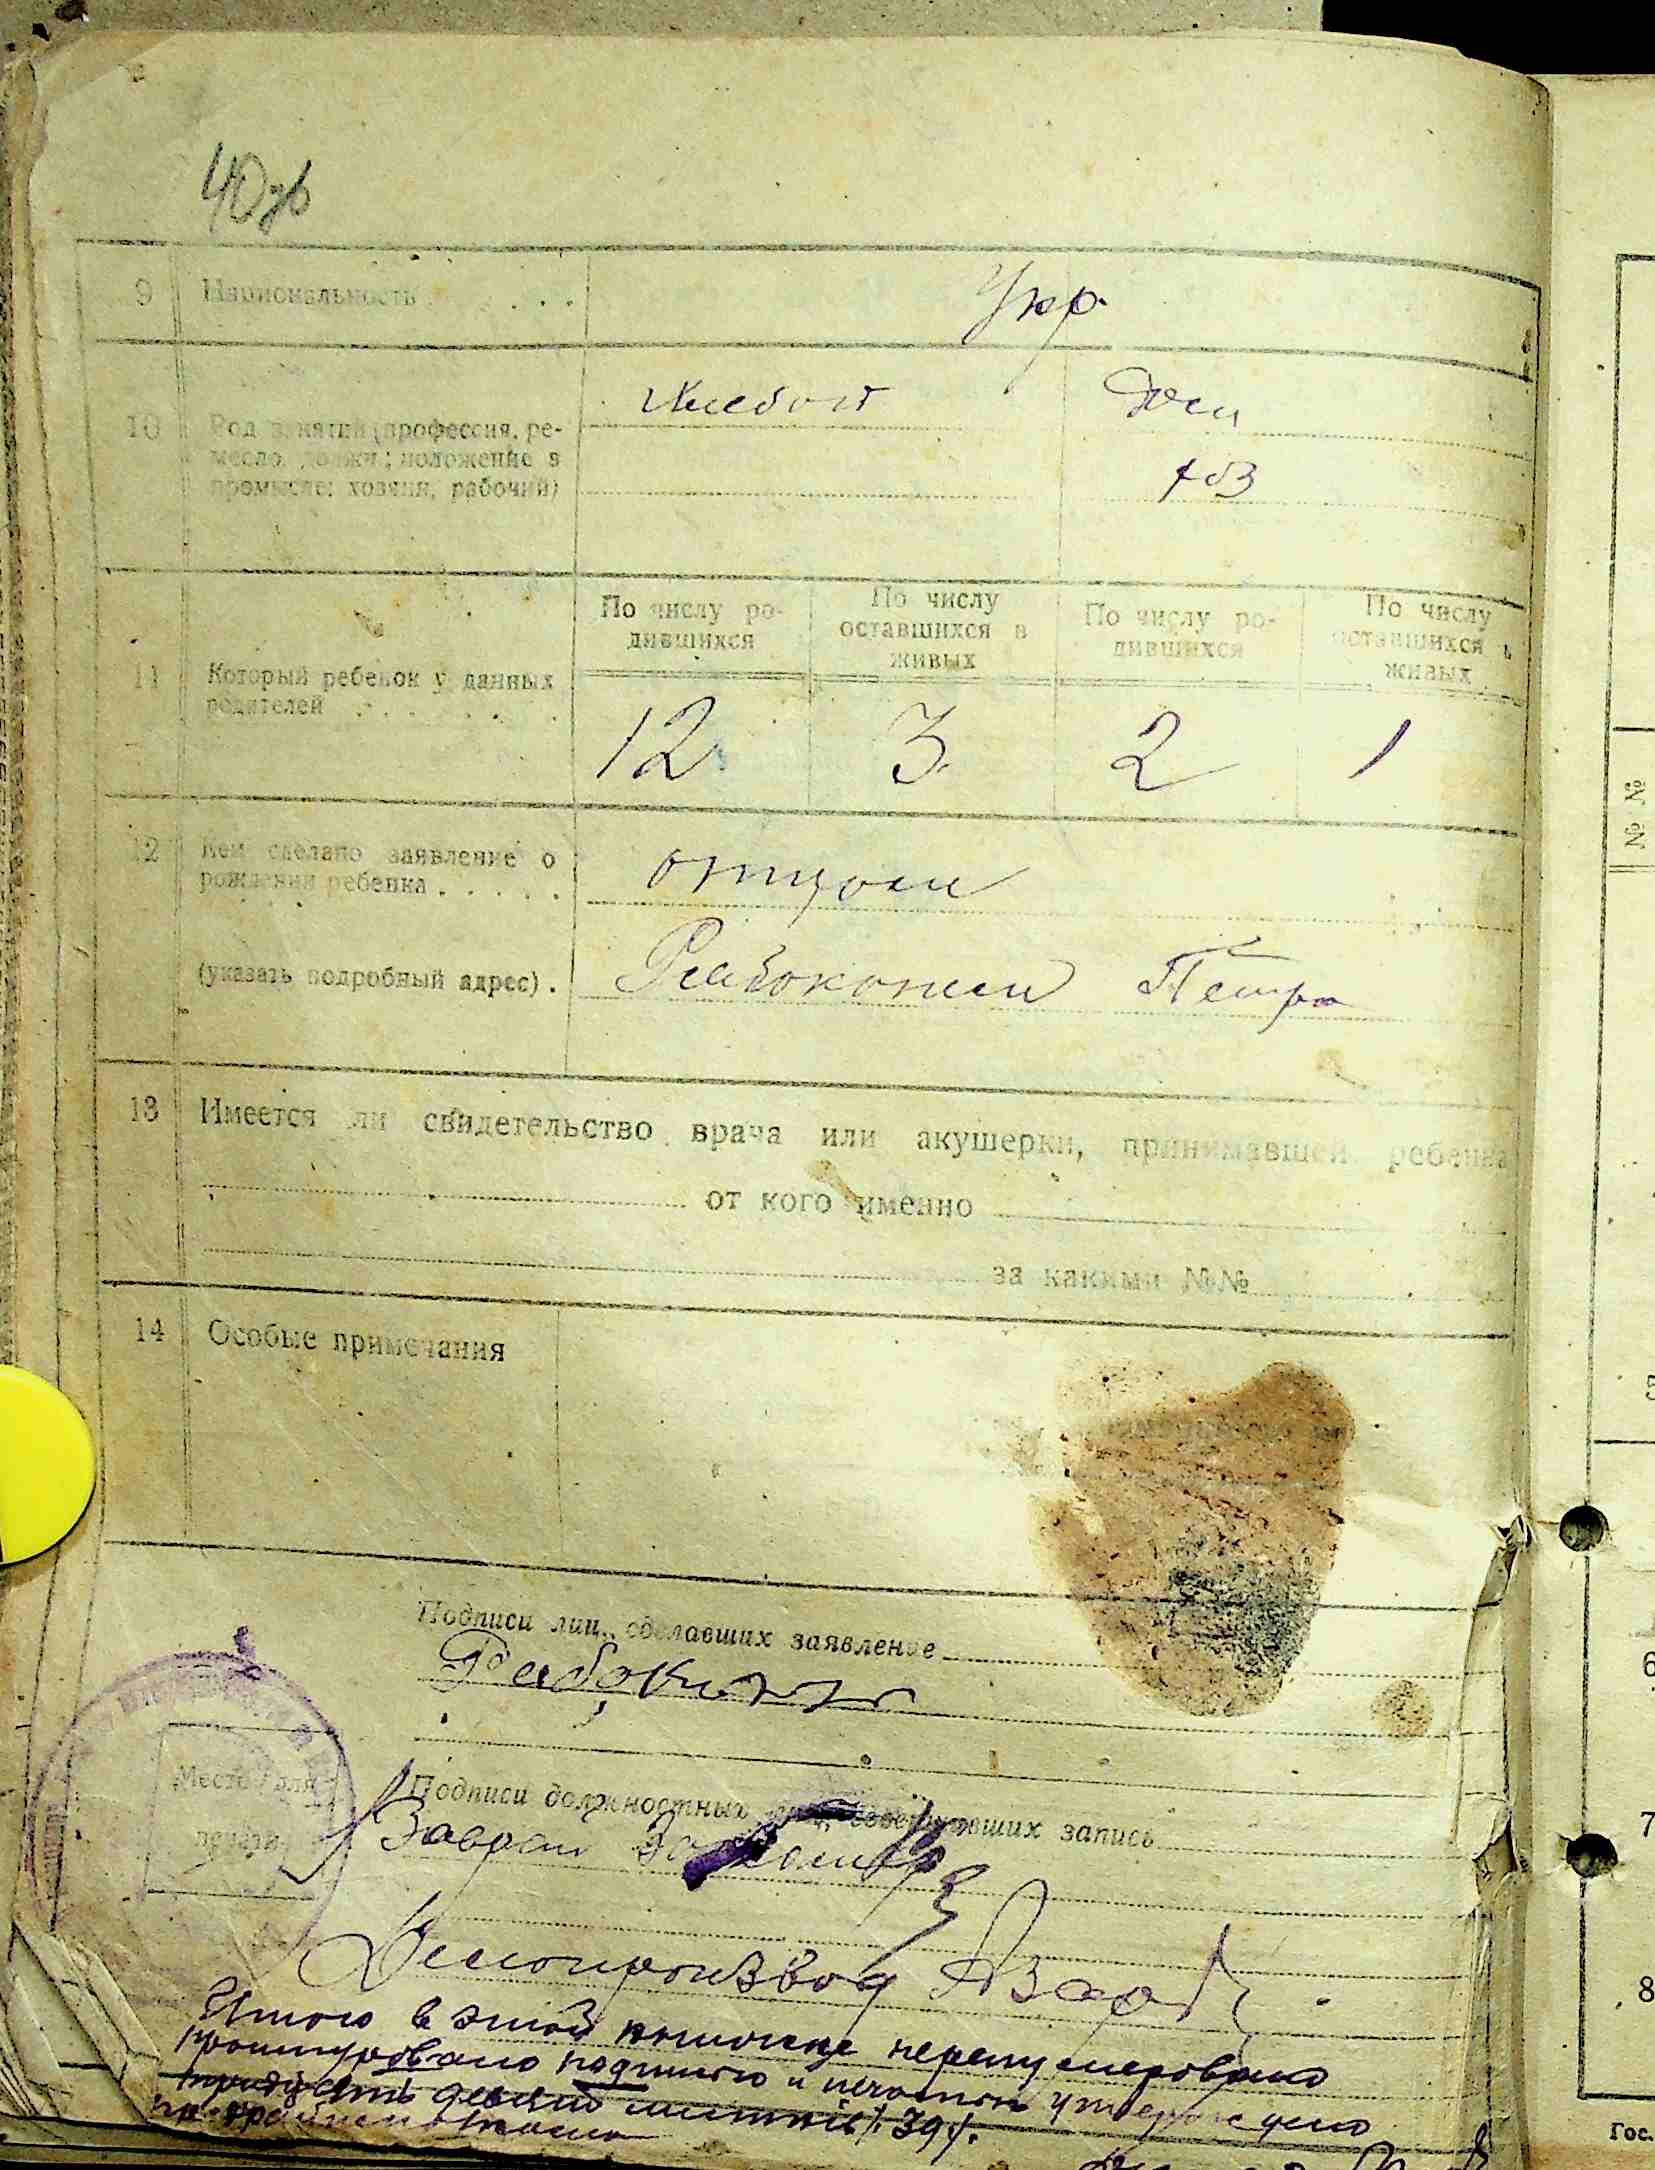 40
9 Национальность . . . .
Укр.
10 Род занятий (профессия, ре-
месло, должн.; положение в
промысле: хозяин, рабочий)
Дом
хоз
11 Который ребенок у данных
родителей . . . . . . .
По числу ро-
дившихся
По числу
оставшихся в
живых
По числу ро-
дившихся
По числу
оставшихся в
живых
12 3 2 1
12 Кем сделано заявление о
рождении ребенка . . . . .
отцом
(указать подробный адрес) .
Рябоконем Петром
13 Имеется ли свидетельство врача или акушерки, принимавшей ребенка
от кого именно
за какими №№
14 Особые примечания
Подписи лиц, сделавших заявление
Рабоконь
Место для
печати
Подписи должностных лиц, совершивших запись
Делопроизвод
Итого в этой книжке перенумеровано
прошнуровано подписью и печатью
тридцять девять листків /39/.
№ №
6
7
8
Гос.